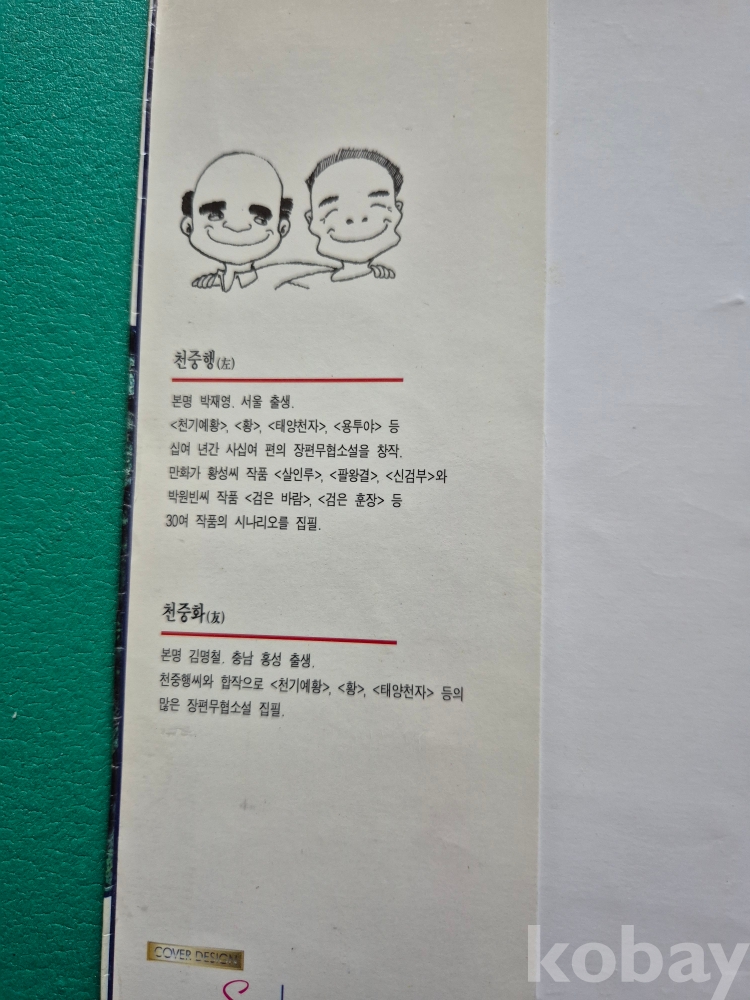 천중행(左)
본명 박재영. 서울 출생.
<천기예황>, <황>, <태양천자>, <용투야> 등
십여 년간 사십여 편의 장편무협소설을 창작.
만화가 황성씨 작품 <살인루>, <팔왕결>, <신검부>와
박원빈씨 작품 <검은 바람>, <검은 훈장> 등
30여 작품의 시나리오를 집필.
천중화(友)
본명 김명철. 충남 홍성 출생.
천중행씨와 합작으로 <천기예황>, <황>, <태양천자> 등의
많은 장편무협소설 집필.
COVER DESIGN
kobay